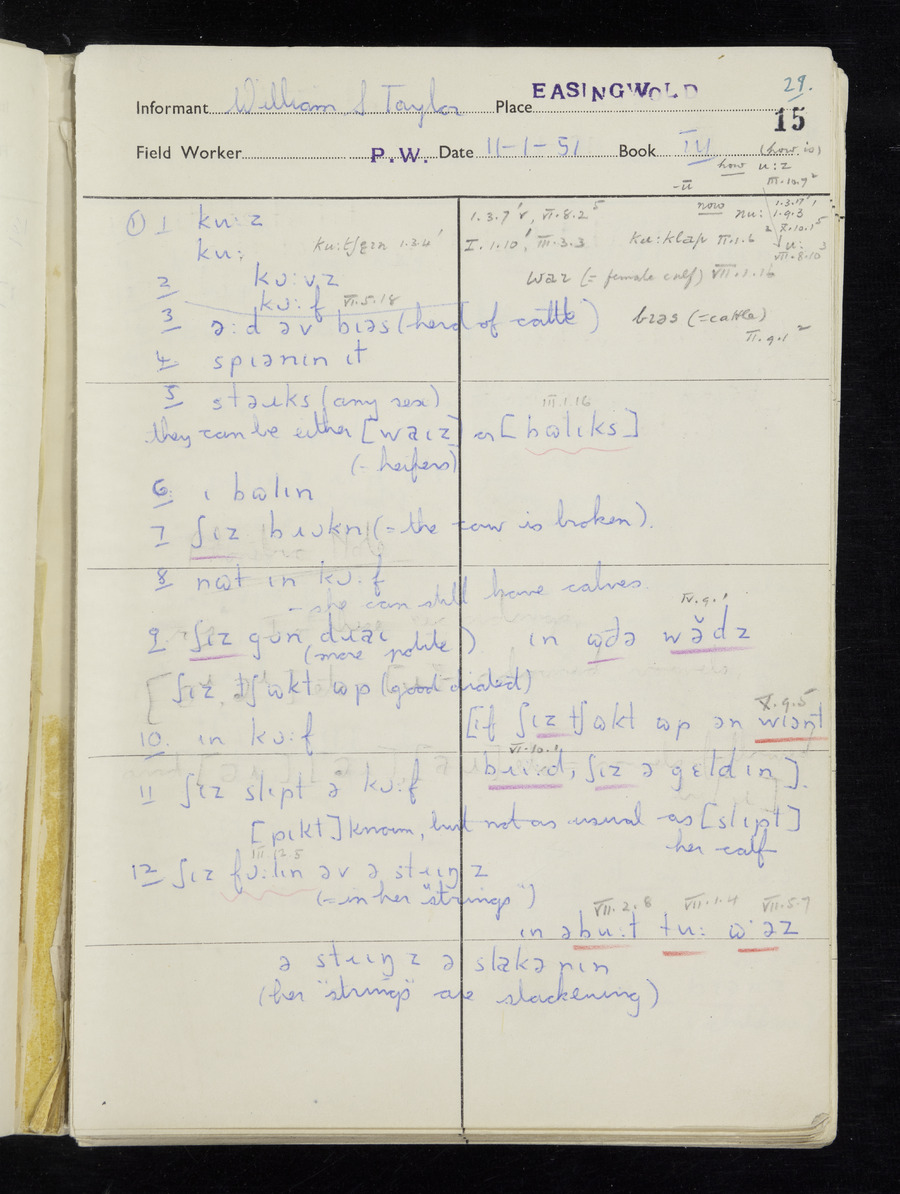 29.
Informant William S Taylor Place EASINGWOLD
15
Field Worker P.W. Date 11-1-51 Book III
(how is)
how u:z
-ū III.10.7²
① 1 ku:z I.3.7'r, VI.8.2⁵ now nu: I.3.17'¹ I.9.3
ku: ku:tʃɛɪn I.3.4' I.1.10', III.3.3 ku:klap II.1.6 ² X.10.1⁵ u: ³ VII.8.10
2 kʊ:vz waɪ (= female calf) VII.1.16
kʊ:f VI.5.18
3 ə:d əv bɪəs (herd of cattle) bɪəs (=cattle)
II.9.1²
4 spɪənɪn ɪt
5 stəɹks (any sex)
III.1.16
they can be either [waɪz] or [bɷlɪks]
(= heifers)
6 ɪ bɷlɪn
7 ʃɪz bɹʊkn (= the cow is broken).
8 nɷt ɪn kʊ:f
- she can still have calves.
IV.9.'
9 ʃɪz gun dɹaɪ ɪn ɷðə wə̆dz
(more polite)
[ʃɪz tʃɷkt ɷp (good dialect)
X.9.5
10. ɪn kʊ:f [if ʃɪz tʃɷkt ɷp ən wɪənt
VI.10.1
11 ʃɪz slɪpt ə kʊ:f bɹi:d, ʃɪz ə gɛldɪn].
[pɪkt] known, but not as usual as [slɪpt]
her calf
III.12.5
12 ʃɪz fʊ:lɪn əv ə stɹɪŋz
(= in her "strings")
VII.2.8 VII.1.4 VII.5.7
ɪn əbu:t tu: ɷ·əz
ə stɹɪŋz ə slakənɪn
(her "strings" are slackening)